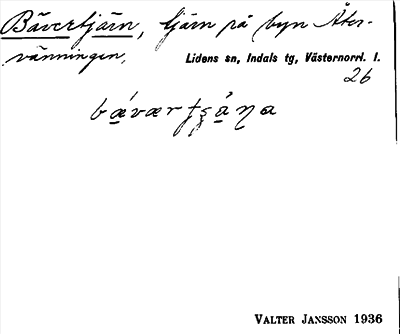 Bävertjärn, tjärn på byn Åter-
vänningen,
Lidens sn, Indals tg, Västernorrl. l.
26
VALTER JANSSON 1936